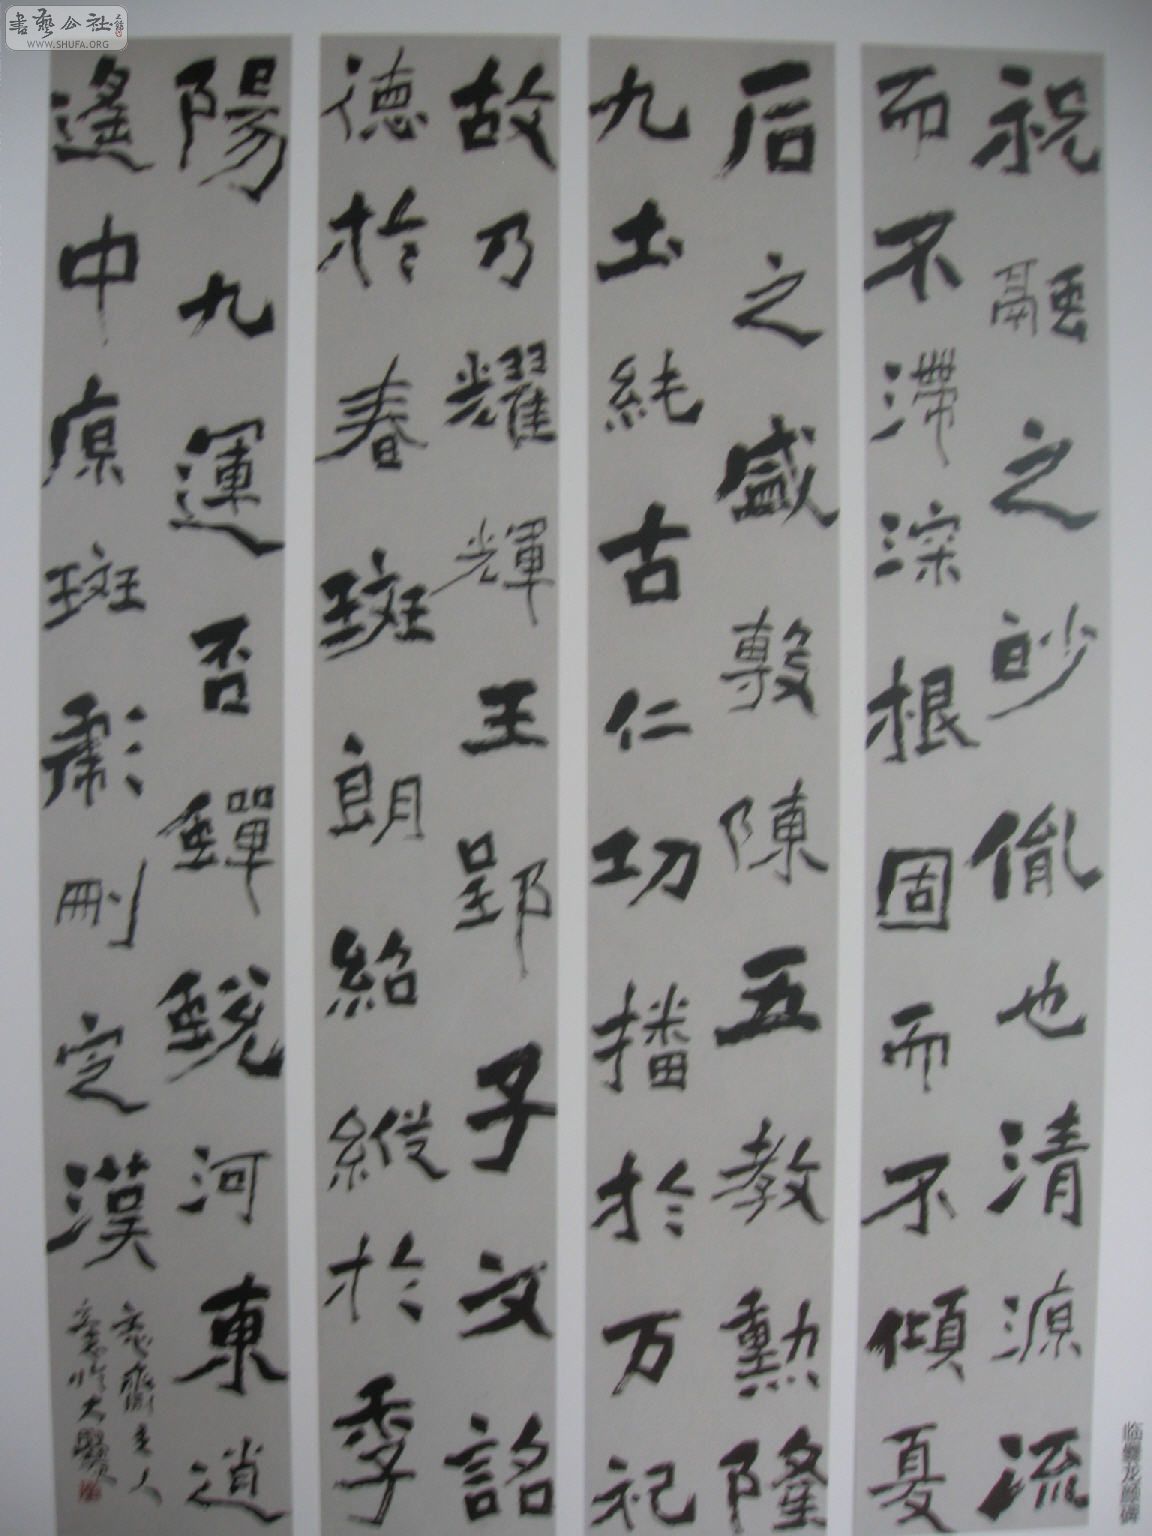 祝融之眇胤也清源流
而不滞深根固而不傾夏
后之盛敷陳五教勳隆
九土純古仁功播於万祀
故乃耀輝王郢子文詺
德於春斑朗紹縱於季
陽九運否蟬蛻河東逍
遙中原斑彪刪定漢
臨爨龙颜碑
書藝公社
WWW.SHUFA.ORG